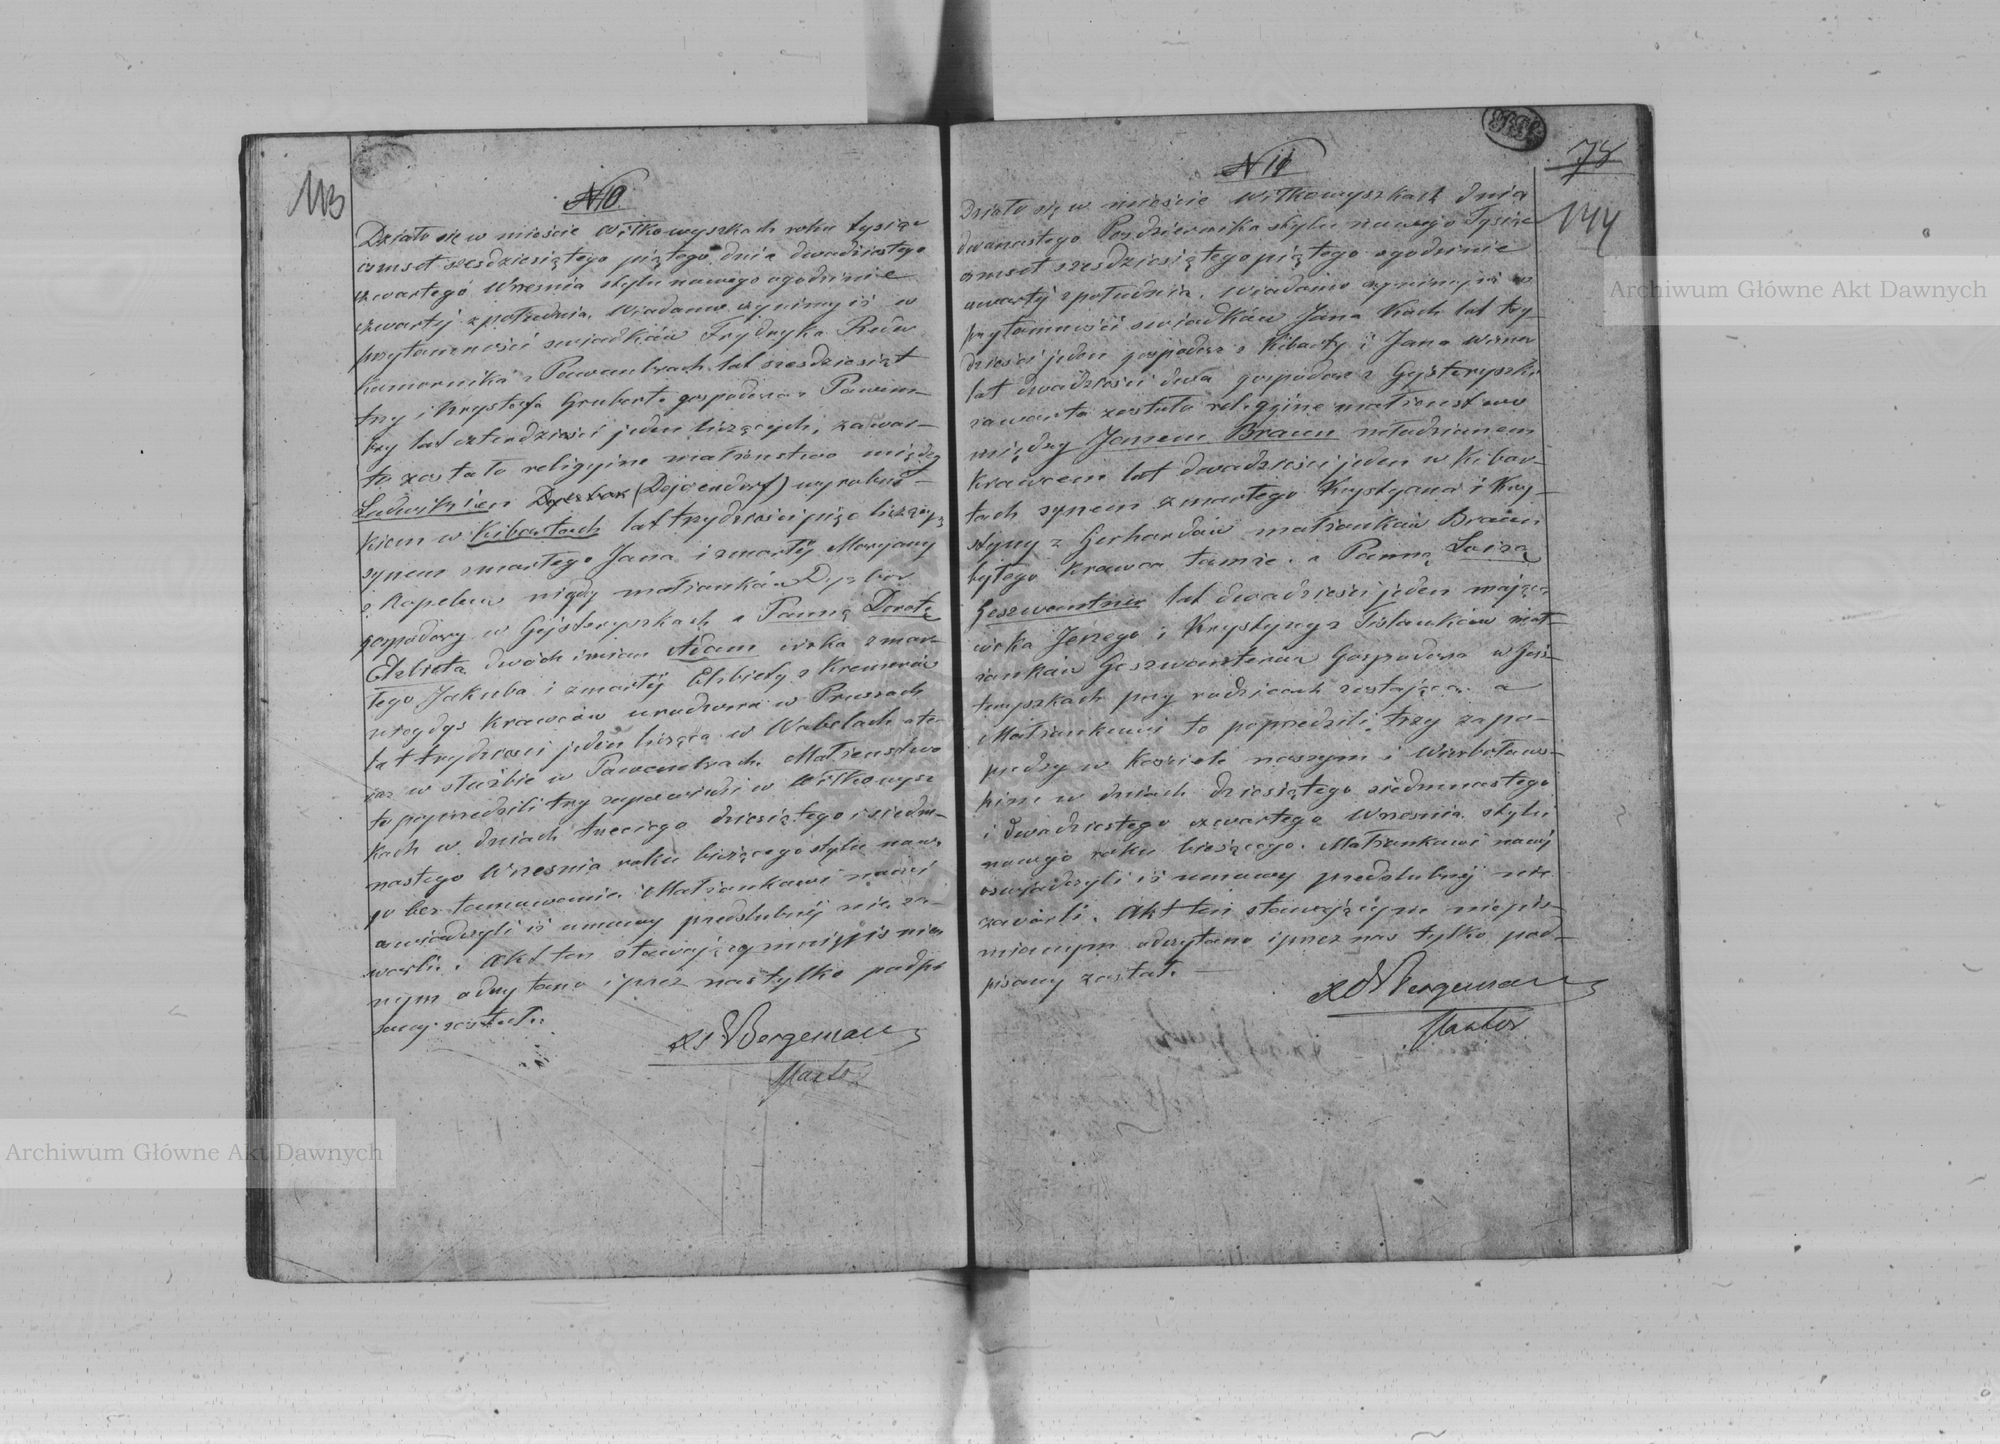 113
N 10.
Działo się w mieście Wiłkowyszkach roku tysiąc
ośmset sześdziesiątego piątego dnia dwudziestego
czwartego Wrzesnia stylu nowego o godzinie
czwartej z południa. Wiadomo czynimy iż w
przytomności swiadków Frydryka
komornika z lat sześdziesiąt
trzy i Krystofa Gruberta gospodarza z
try lat czterdzieści jeden liczących, zawar-
te zostało religijne małżenstwo między
Ludwikiem (Dojaendorf) wyrobni-
kiem w Kibartach lat trzydzieści pięc liczącym
synem zmarłego Jana i zmarłej Maryany
z niegdy małżonków
gospodarzy w Gejsteryszkach a Panną Dorotą
Elzbieta dwóch imion Adam córka zmar-
łego Jakuba i zmarłej Elzbiety z Kremerów
niegdys Krawców urodzona w Prussach
lat trzydzieści jeden licząca w Wabelach a te-
raz w służbie w Małżenstwo
to poprzedzili trzy zapowiedzi w Wiłkowysz
kach w dniach trzeciego dziesiątego i siedm-
nastego Wrzesnia roku bieżącego stylu nowe
go bez tamowania. Małżonkowie nowi
oswiadczyli iż umowy przedslubnej nie za-
warli. Akt ten stawającym niepismien
nym odczytano i przez nas tylko podpi
sany został.
Bergeman
Pastor
N 11
78
144
Działo się w mieście Wiłkowyszkach dnia
dwunastego Pazdziernika stylu nowego Tysiąc
osmset szesdziesiątego piątego o godzinie
czwartej z południa. Wiadomo czynimy iż w
przytomności swiadków Jana Kach lat trzy-
dzieści jeden gospodarz z Kibarty i Jana
lat dwadzieścia dwa gospodarz z Gejsteryszki
zawarte zostało religijne małżenstwo
między Janem Braun młodzianem
Krawcem lat dwadzieścia jeden w Kibar-
tach synem zmarłego Krystyana i Kry-
styny z Gerhardów małżonków Braun
byłego Krawca tamże. a Panną Luizą
Geszwentner lat dwadzieścia jeden mająca
córka Jerzego i Krystyny z mał-
żonków Gospodarza w Gejs-
teryszkach przy rodzicach zostająca. a
Małżenstwo to poprzedzili trzy zapo-
wiedzy w Kosciele naszym i Wierbołows-
kim w dniach dziesiątego siedmnastego
i dwudziestego czwartego Wrzesnia stylu
nowego roku bieżącego. Małżonkowie nowi
oswiadczyli iż umowy przedslubnej nie
zawarli. Akt ten stawającym niepis-
miennym odczytano i przez nas tylko pod-
pisany został.
Bergeman
Pastor
Archiwum Główne Akt Dawnych
Archiwum Główne Akt Dawnych